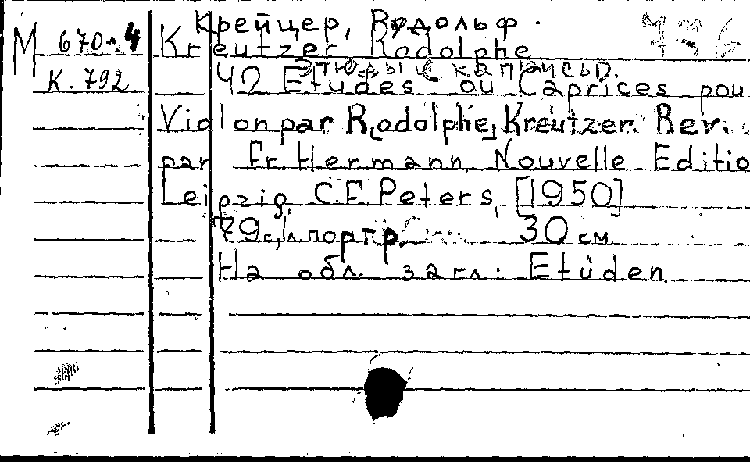 Крейцер, Рудольф.
М 670-4 Kreutzer, Rodolphe
Этюды и каприсы.
К. 792 42 Etudes ou Caprices pou
Violon par R[odolphe] Kreutzer. Rev.
par Fr. Hermann. Nouvelle Editio
Leipzig, C.F. Peters, [1950]
79 с., л. портр. 30 см
На обл. загл.: Etüden